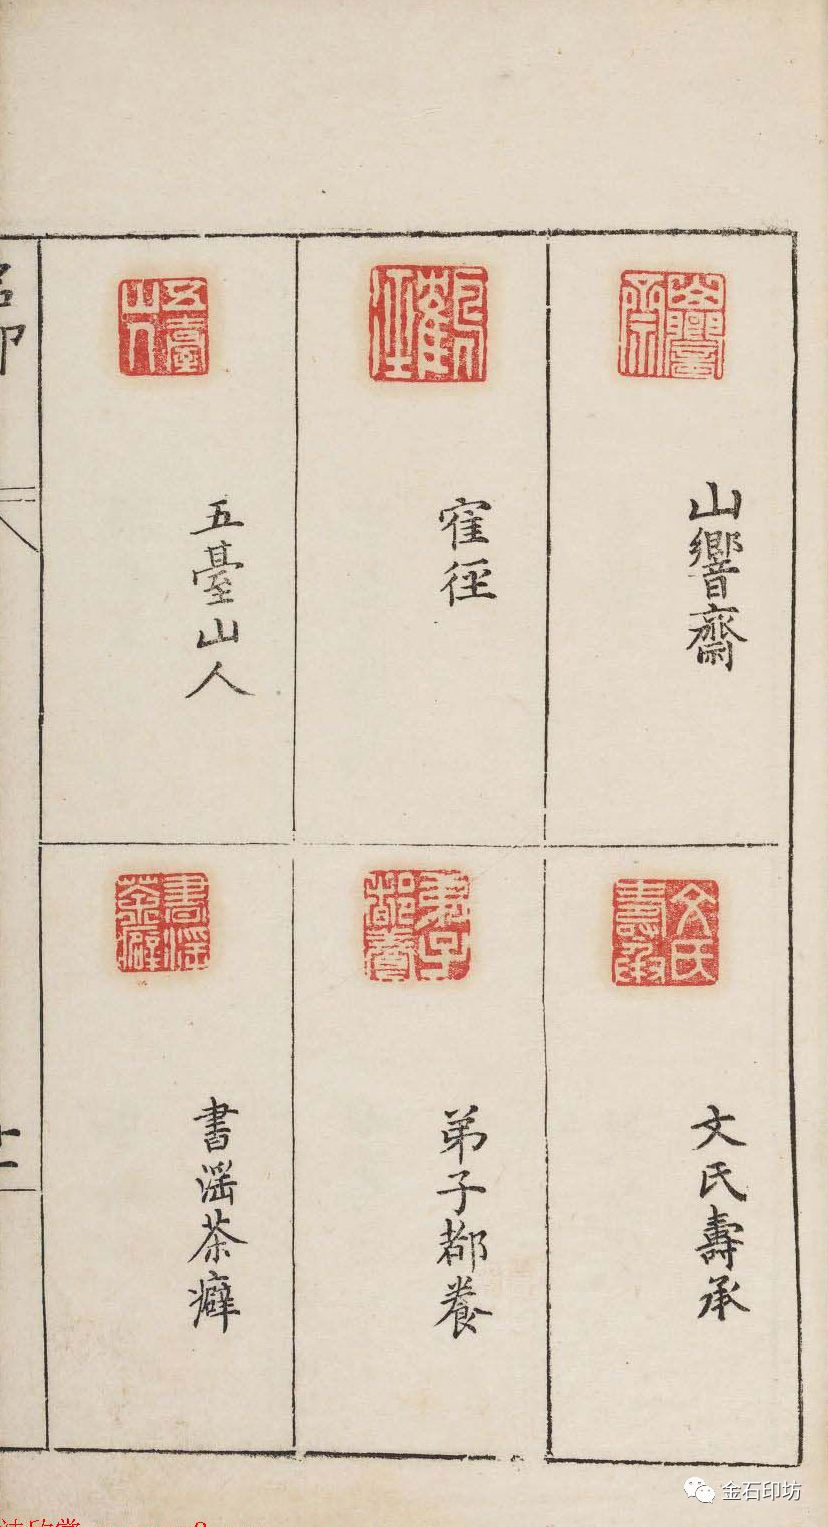 山響齋
寉徑
五臺山人
文氏壽承
弟子都養
書滛茶癖
金石印坊